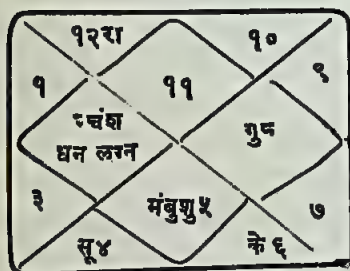 १२रा १०
१ ११ ९
चंश गुरु
धन लग्न
३ मंबुशु५ ७
सू४ के६